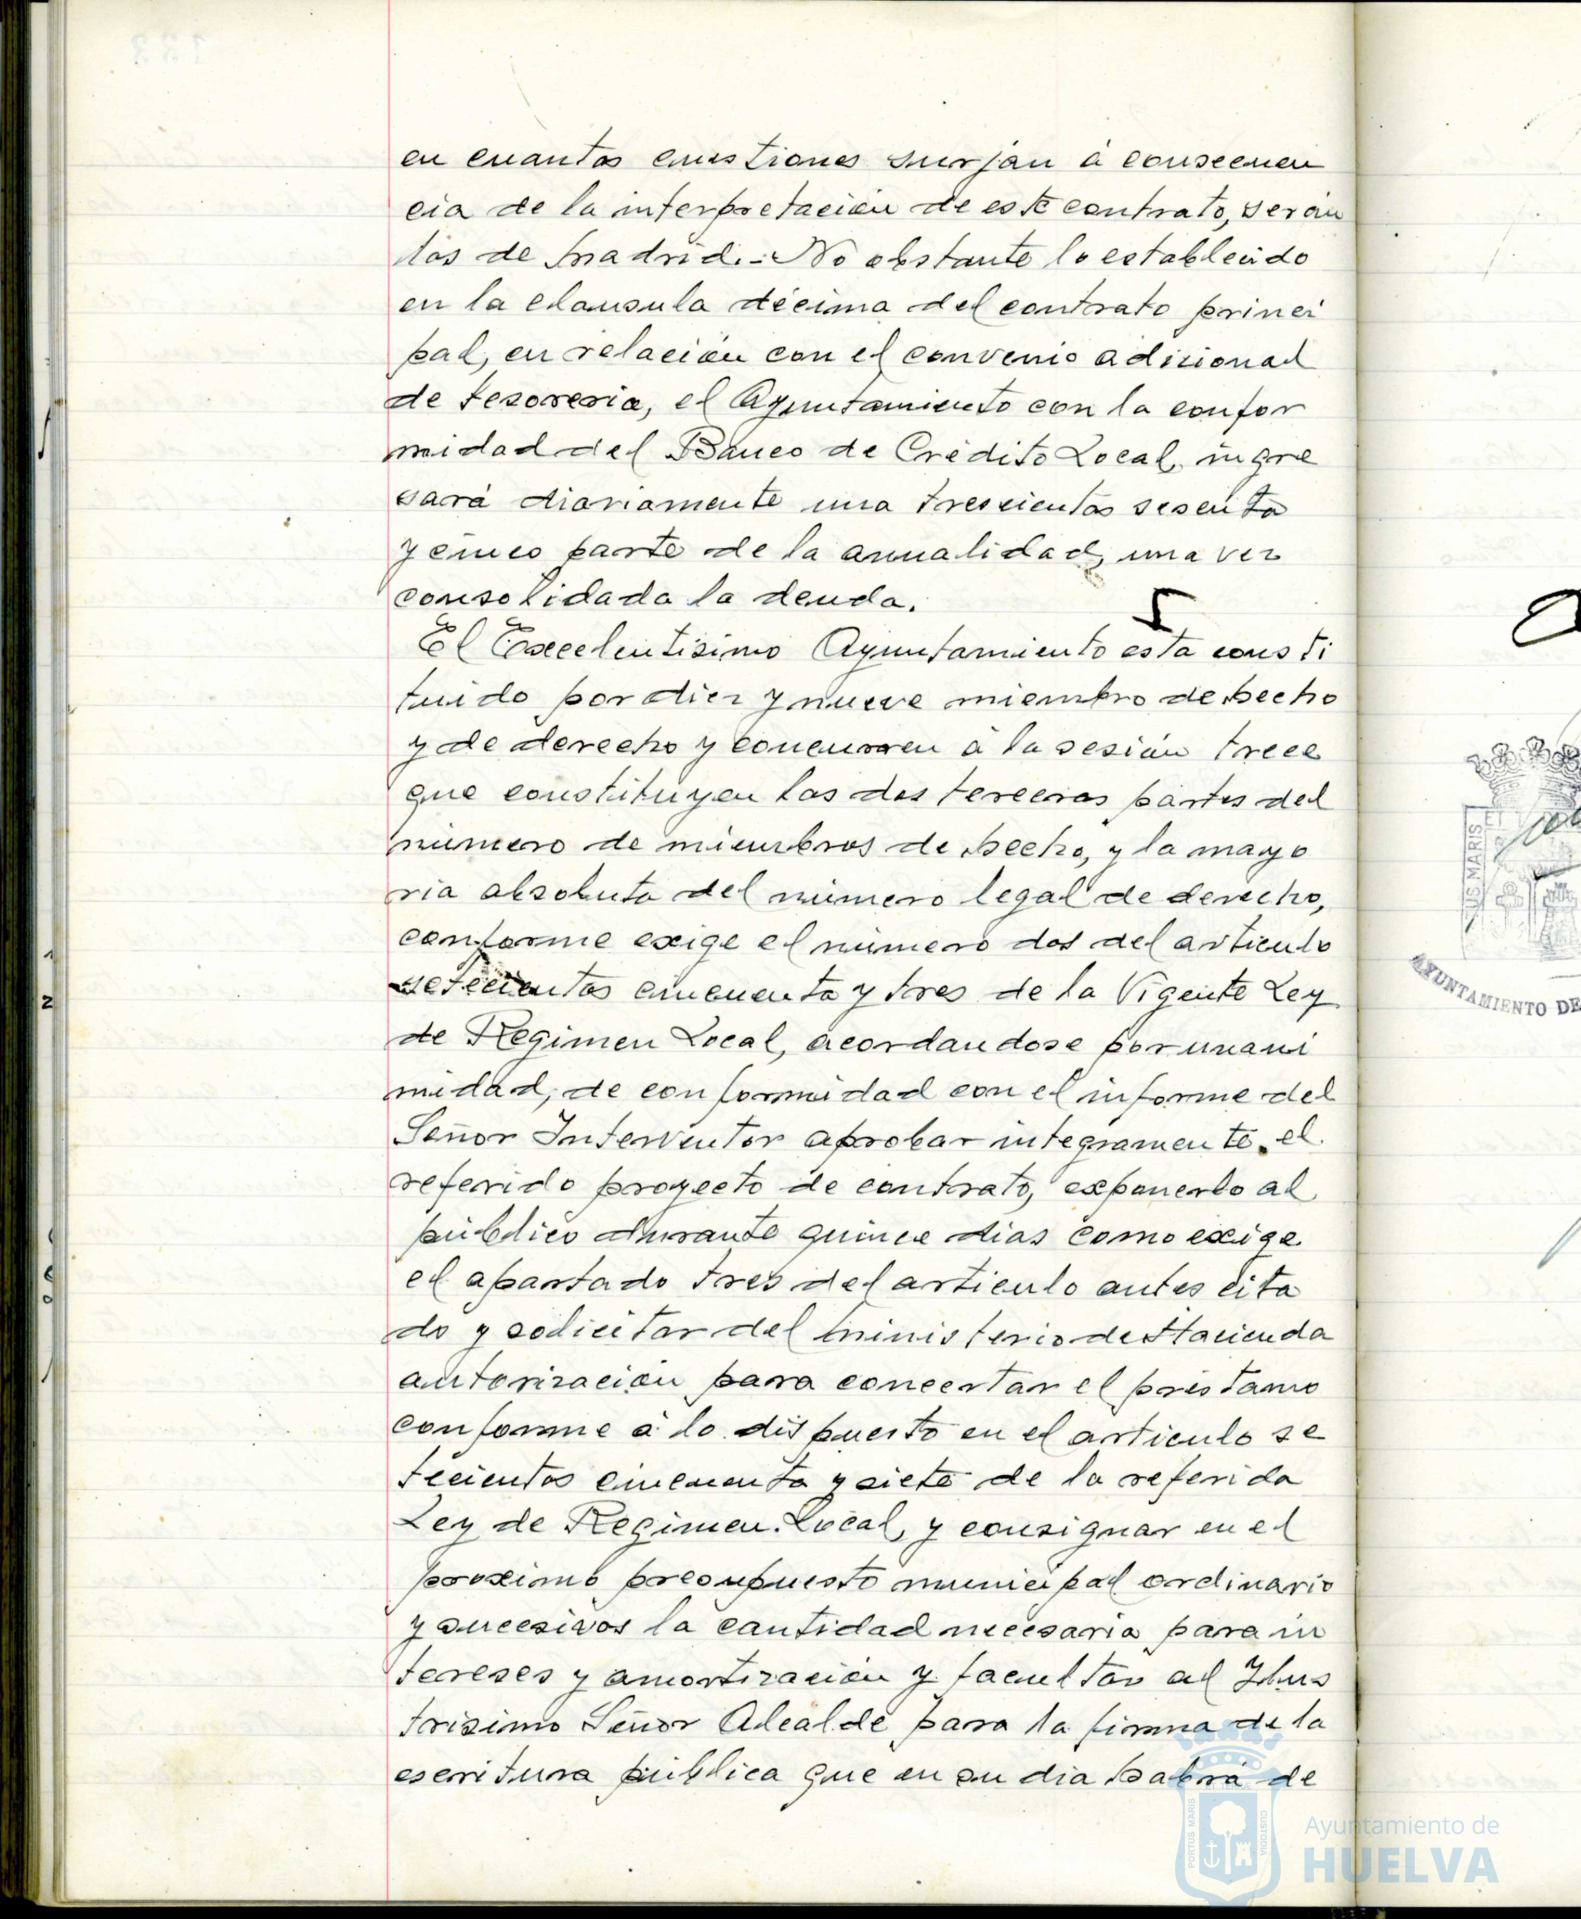 en cuantas cuestiones surjan á consecuen
cia de la interpretación de este contrato, serán
las de Madrid.- No obstante lo establecido
en la clausula décima del contrato princi
pal, en relación con el convenio adicional
de tesoreria, el Ayuntamiento con la confor
midad del Banco de Crédito Local, ingre
sará diariamente una trescientas sesenta
y cinco parte de la anualidad, una vez
consolidada la deuda.
El Excelentisimo Ayuntamiento esta consti
tuido por diez y nueve miembro de hecho
y de derecho y concurren á la sesión trece
que constituyen las dos terceras partes del
número de miembros de hecho, y la mayo
ria absoluta del número legal de derecho,
conforme exige el número dos del articulo
setecientos cincuenta y tres de la Vigente Ley
de Regimen Local, acordandose por unani
midad, de conformidad con el informe del
Señor Interventor aprobar integramente el
referido proyecto de contrato, exponerlo al
público durante quince dias como exige
el apartado tres del articulo antes cita
do y solicitar del Ministerio de Hacienda
autorización para concertar el préstamo
conforme á lo dispuesto en el articulo se
tecientos cincuenta y siete de la referida
Ley de Regimen Local, y consignar en el
proximo presupuesto municipal ordinario
y sucesivos la cantidad necesaria para in
tereses y amortización y facultar al Ilus
trisimo Señor Alcalde para la firma de la
escritura pública que en su dia habrá de
AYUNTAMIENTO DE
US MARIS
PORTUS MARIS
CUSTODIA
Ayuntamiento de
HUELVA